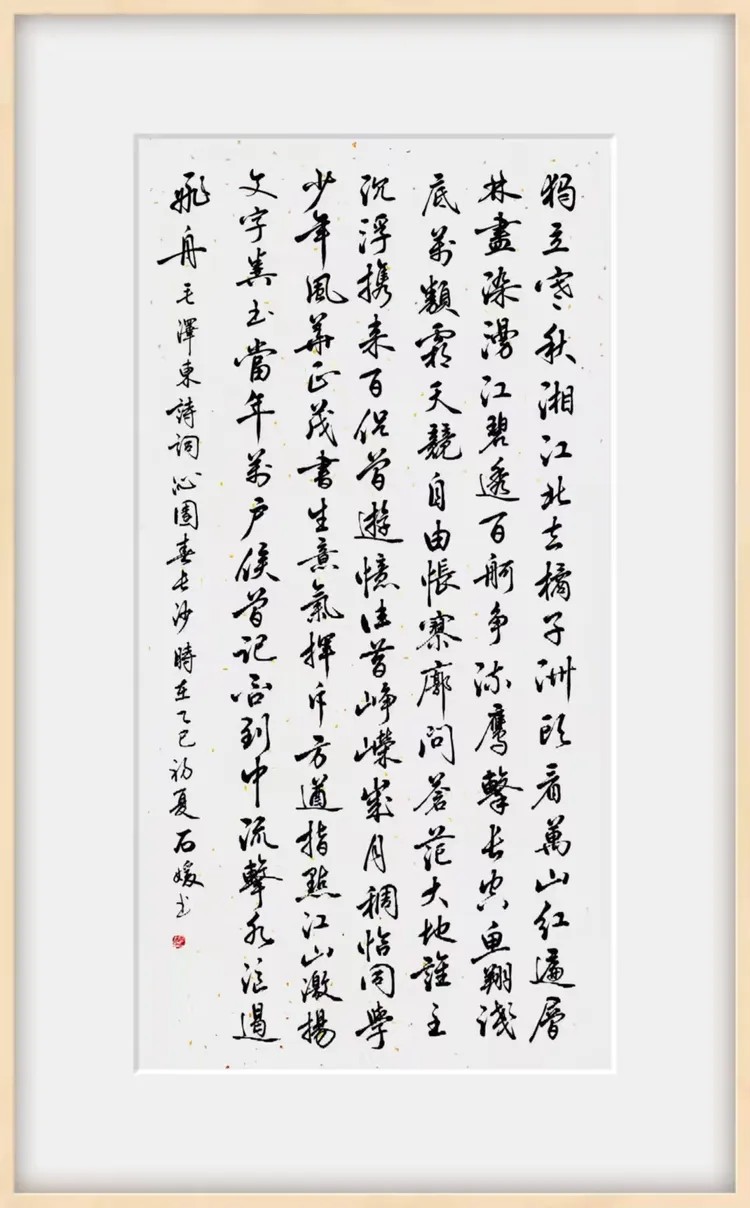 獨立寒秋湘江北去橘子洲頭看萬山紅遍層
林盡染漫江碧透百舸争流鹰擊長空魚翔淺
底萬類霜天競自由悵寥廓問蒼茫大地誰主
沉浮携来百侣曾遊憶往昔崢嶸歲月稠恰同學
少年風華正茂書生意氣揮斥方遒指點江山激揚
文字糞土當年萬户侯曾記否到中流擊水浪遏
飛舟毛澤東詩詞沁園春長沙時在乙巳初夏石媛书